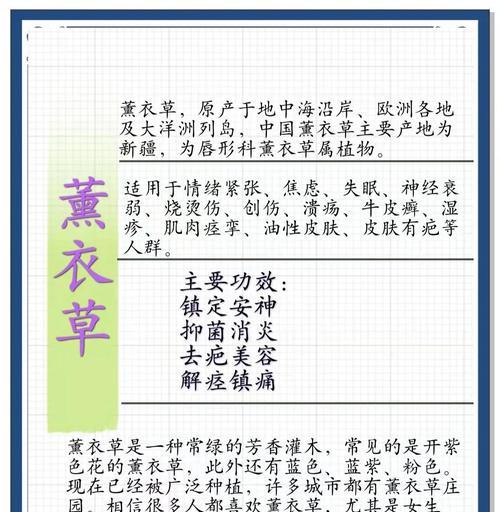 薰衣草
薰衣草，原产于地中海沿岸、欧洲各地
及大洋洲列岛，中国薰衣草主要产地为
新疆，为唇形科薰衣草属植物。
适用于情绪紧张、焦虑、失眠、神经衰
弱、烧烫伤、创伤、溃疡、牛皮癣、湿
疹、肌肉痉挛、油性皮肤、皮肤有疤等
人群。
主要功效：
镇定安神
抑菌消炎
去疤美容
解痉镇痛
薰衣草是一种常绿的芳香灌木，常见的是开紫
色花的薰衣草，此外还有蓝色、蓝紫、粉色。
现在已经被广泛种植，许多城市都有薰衣草庄
园。相信很多人都喜欢薰衣草，尤其是女生